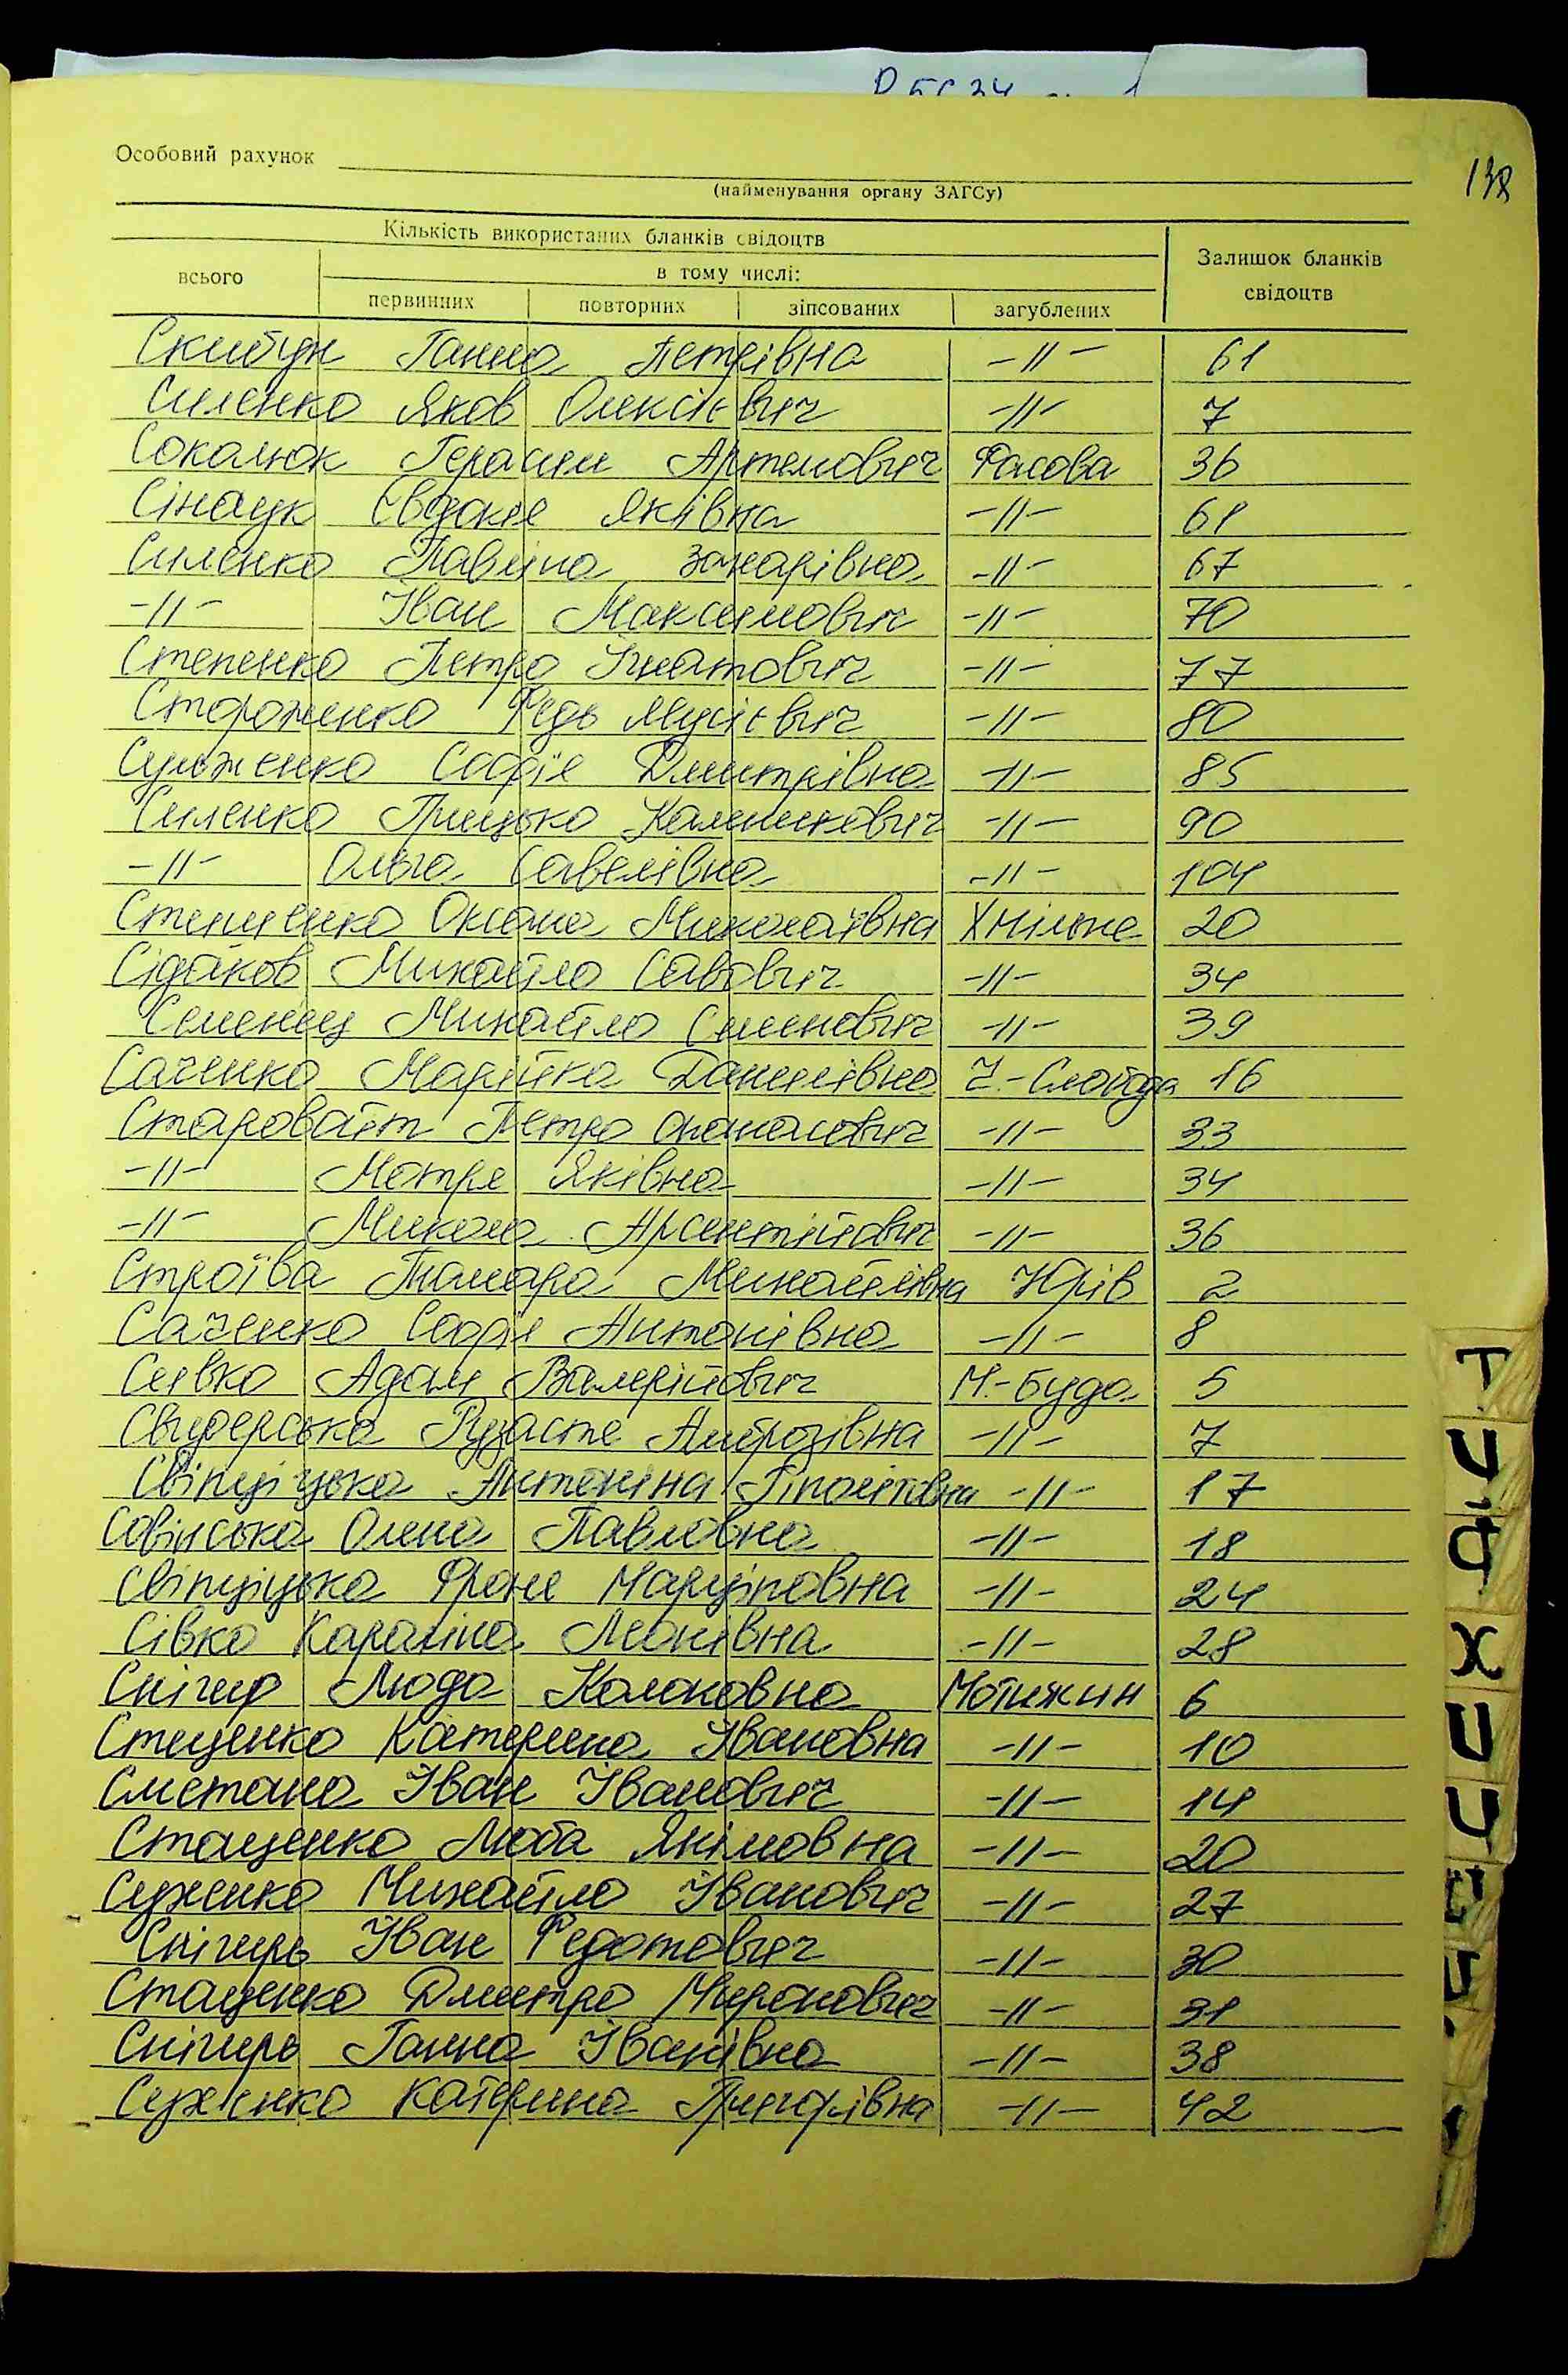 Особовий рахунок
(найменування органу ЗАГСу)
138
Кількість використаних бланків свідоцтв
Залишок бланків свідоцтв
всього
в тому числі:
первинних повторних зіпсованих загублених
Скибун Ганна Петрівна -//- 61
Силенко Яков Олексієвич -//- 7
Сокалюк Герасим Артемович Фасова 36
Сінаук Євдокія Яківна -//- 61
Силенко Павліна Захарівна -//- 67
-//- Іван Максимович -//- 70
Степенко Петро Ігнатович -//- 77
Стороженко Федь Мусієвич -//- 80
Сулженко Софія Дмитрівна -//- 85
Силенко Грицько Калинкович -//- 90
-//- Ольга Савелівна -//- 104
Степненко Оксана Миколаївна Хмільна 20
Сідаков Михайло Савович -//- 34
Семенец Михайло Семенович -//- 39
Саченко Марійка Данилівна Ч.-Слобода 16
Старовойт Петро -//- 33
-//- Мотря Яківна -//- 34
-//- Микола Арсентійович -//- 36
Строїва Тамара Михайлівна Юрів 2
Саченко Софія Антонівна -//- 8
Сивко Адам Валерійович М.-Буда 5
Свидерська Рузастя Амброзівна -//- 7
Свінціцька Антоніна Іполітівна -//- 17
Совінська Олена Павловна -//- 18
Свінціцька Франя Марціновна -//- 24
Сівко Караліна Леонівна -//- 28
Снігир Люда Колоковна Мотижин 6
Стеценко Катерина Івановна -//- 10
Сметана Іван Іванович -//- 14
Стаценко Люба Якімовна -//- 20
Суженко Михайло Іванович -//- 27
Снігирь Іван Федотович -//- 30
Стаценко Дмитро Миронович -//- 31
Снігирь Ганна Іванівна -//- 38
Суженко Катерина Григорівна -//- 42
Т
У
Ф
Х
Ц